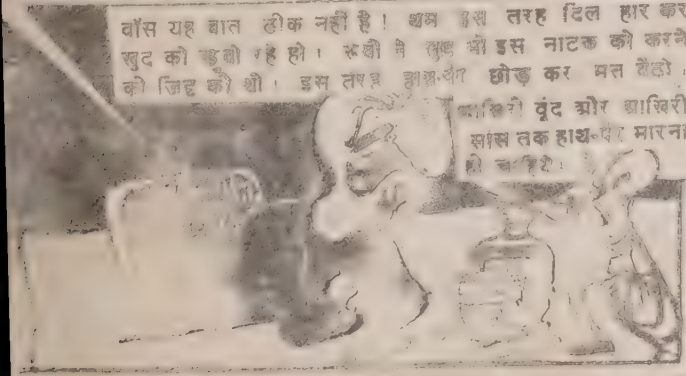 बॉस यह बात ठीक नहीं है! थम इस तरह दिल हार कर
खुद को रहे हो। ने खुद भी इस नाटक को करने
की जिद्द की थी। इस तरह हाथ-पैर छोड़ कर मत बैठो।
आखिरी बूंद और आखिरी
सांस तक हाथ-पैर मारना
ही चाहिये।